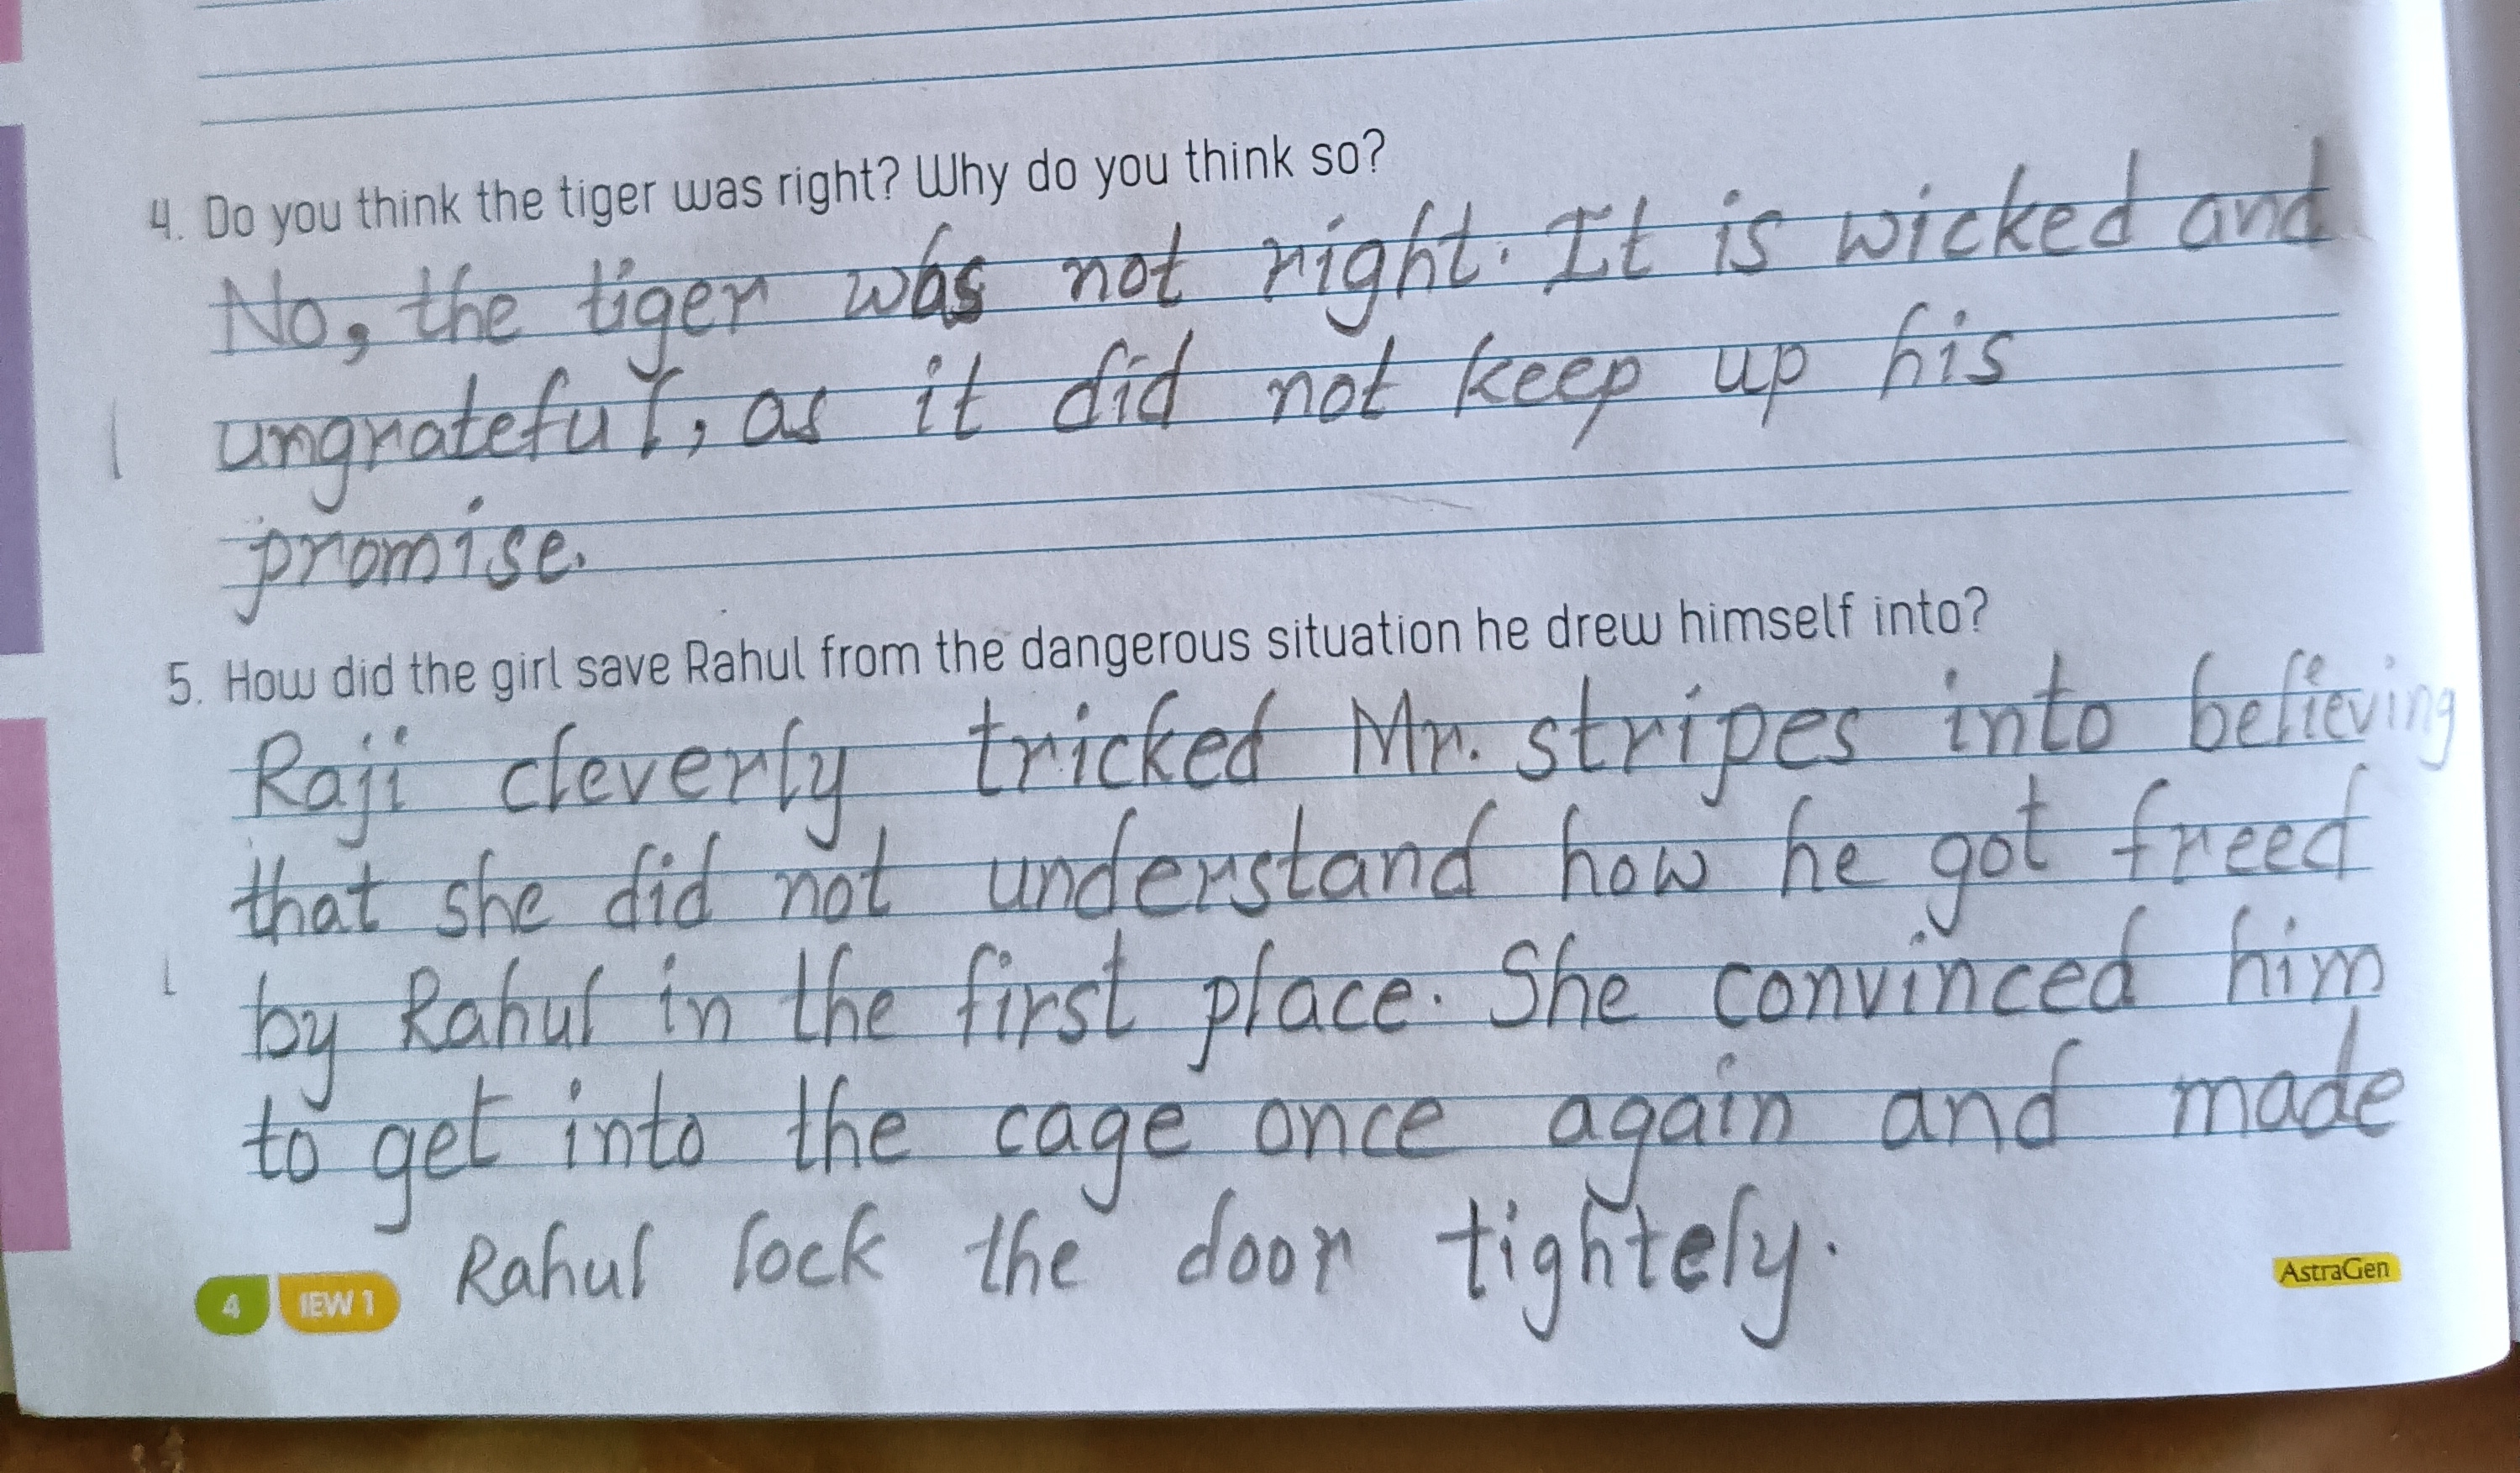 4. Do you think the tiger was right? Why do you think so?
No, the tiger was not right. It is wicked and
ungrateful, as it did not keep up his
promise.
5. How did the girl save Rahul from the dangerous situation he drew himself into?
Raji cleverly tricked Mr. stripes into believing
that she did not understand how he got freed
by Rahul in the first place. She convinced him
to get into the cage once again and made
Rahul lock the door tightely.
4 IEW 1
AstraGen